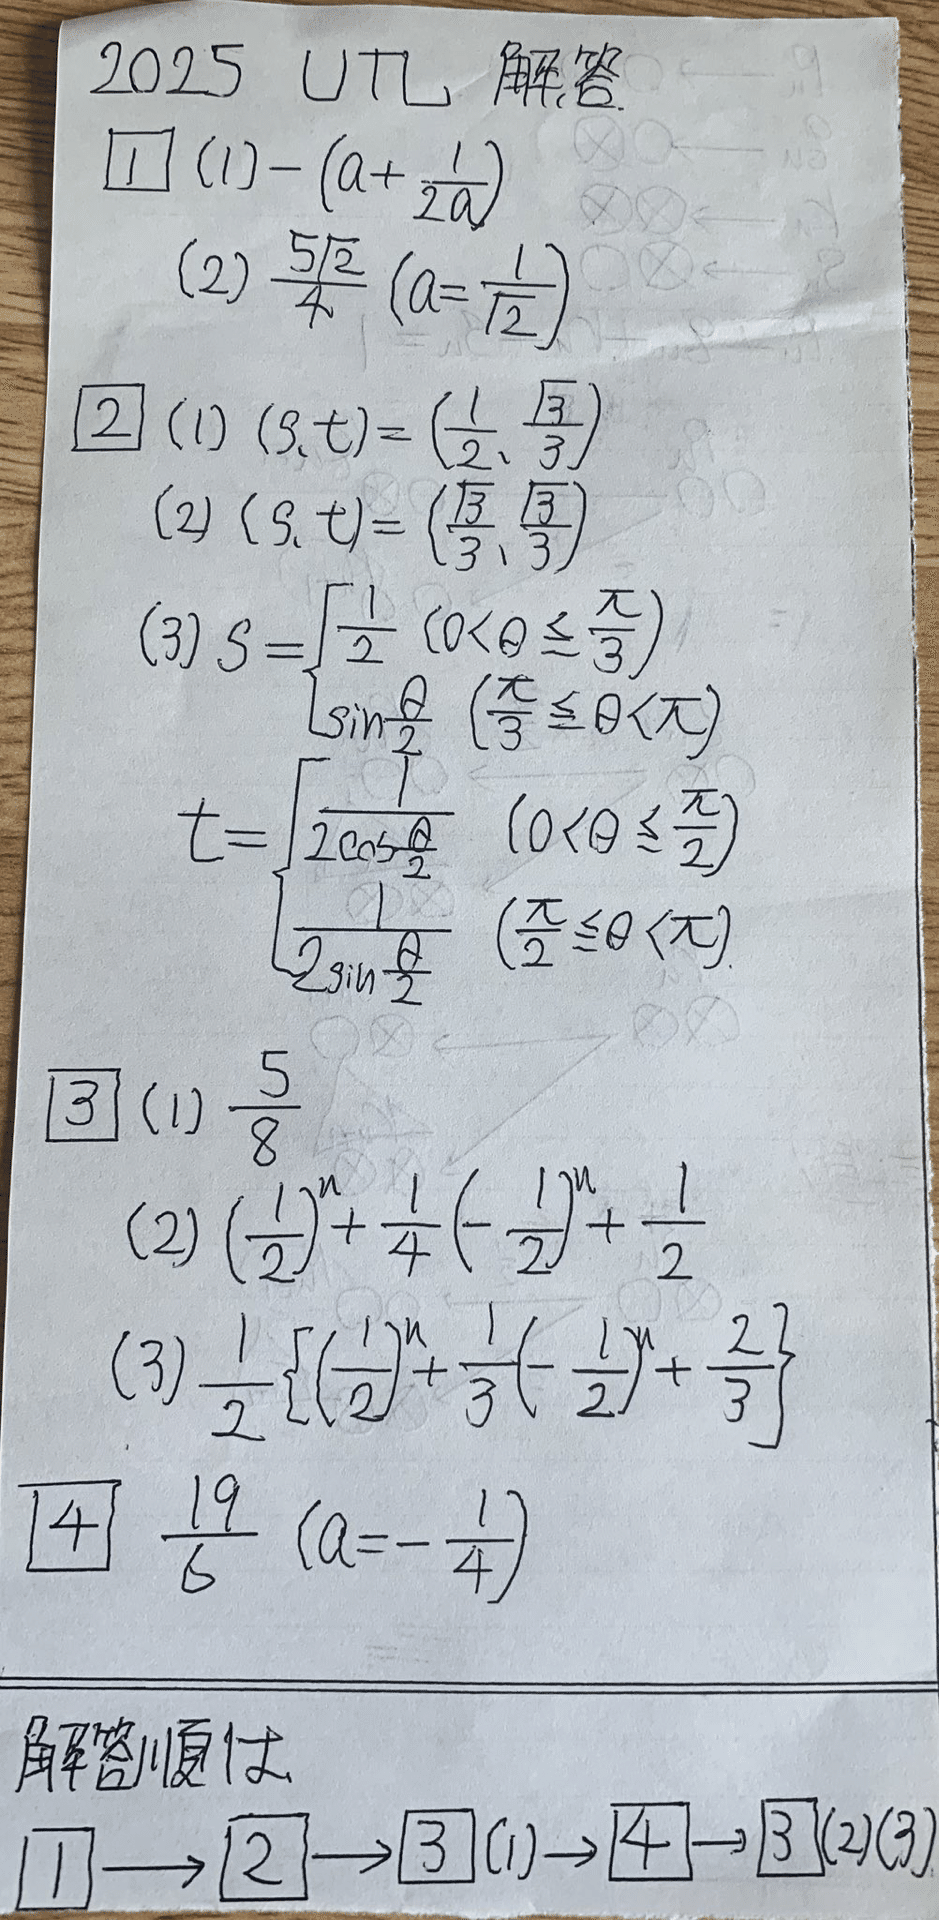 2025 UTL 解答
1 (1) -(a+1/2a)
(2) 5√2/4 (a=1/√2)
2 (1) (s,t)=(1/2、√3/3)
(2) (s,t)=(√3/3、√3/3)
(3) s={1/2 (0<θ≦π/3)
sinθ/2 (π/3≦θ<π)
t={1/2cosθ/2 (0<θ≦π/2)
1/2sinθ/2 (π/2≦θ<π).
3 (1) 5/8
(2) (1/2)^n+1/4(-1/2)^n+1/2
(3) 1/2{(1/2)^n+1/3(-1/2)^n+2/3}
4 19/6 (a=-1/4)
解答順は
1→2→3(1)→4→3(2)(3)